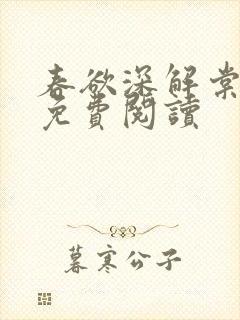 春欲深解棠
免費閱讀
暮寒公子